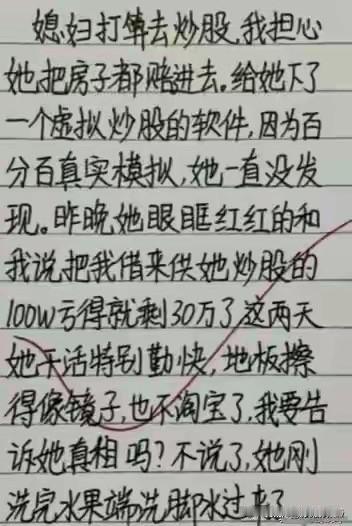 媳妇打算去炒股,我担心
她,把房子都赔进去。给她下了
一个虚拟炒股的软件,因为百
分百真实模拟,她一直没发
现。昨晚,她眼眶红红的和
我说把我借来供她炒股的
100W亏得就剩30万了,这两天
她干活特别勤快,地板擦
得像镜子,也不淘宝了,我要告
诉她真相吗?不说了,她刚
洗完水果端洗脚水过来了